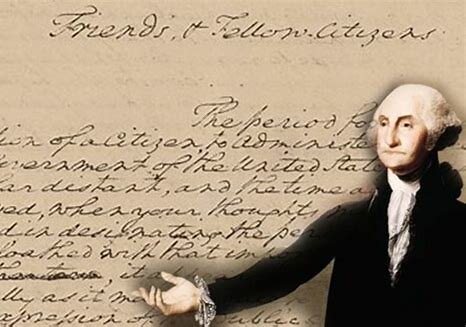 Friends, & Fellow-Citizens
The period fo
ion of a Citizen, to Administe
vernment of the United State
ar distant, and the time a
ved, when your thoughts m
d in designating the per
loathed with that impor
it a
lly as it ma
expression of the public